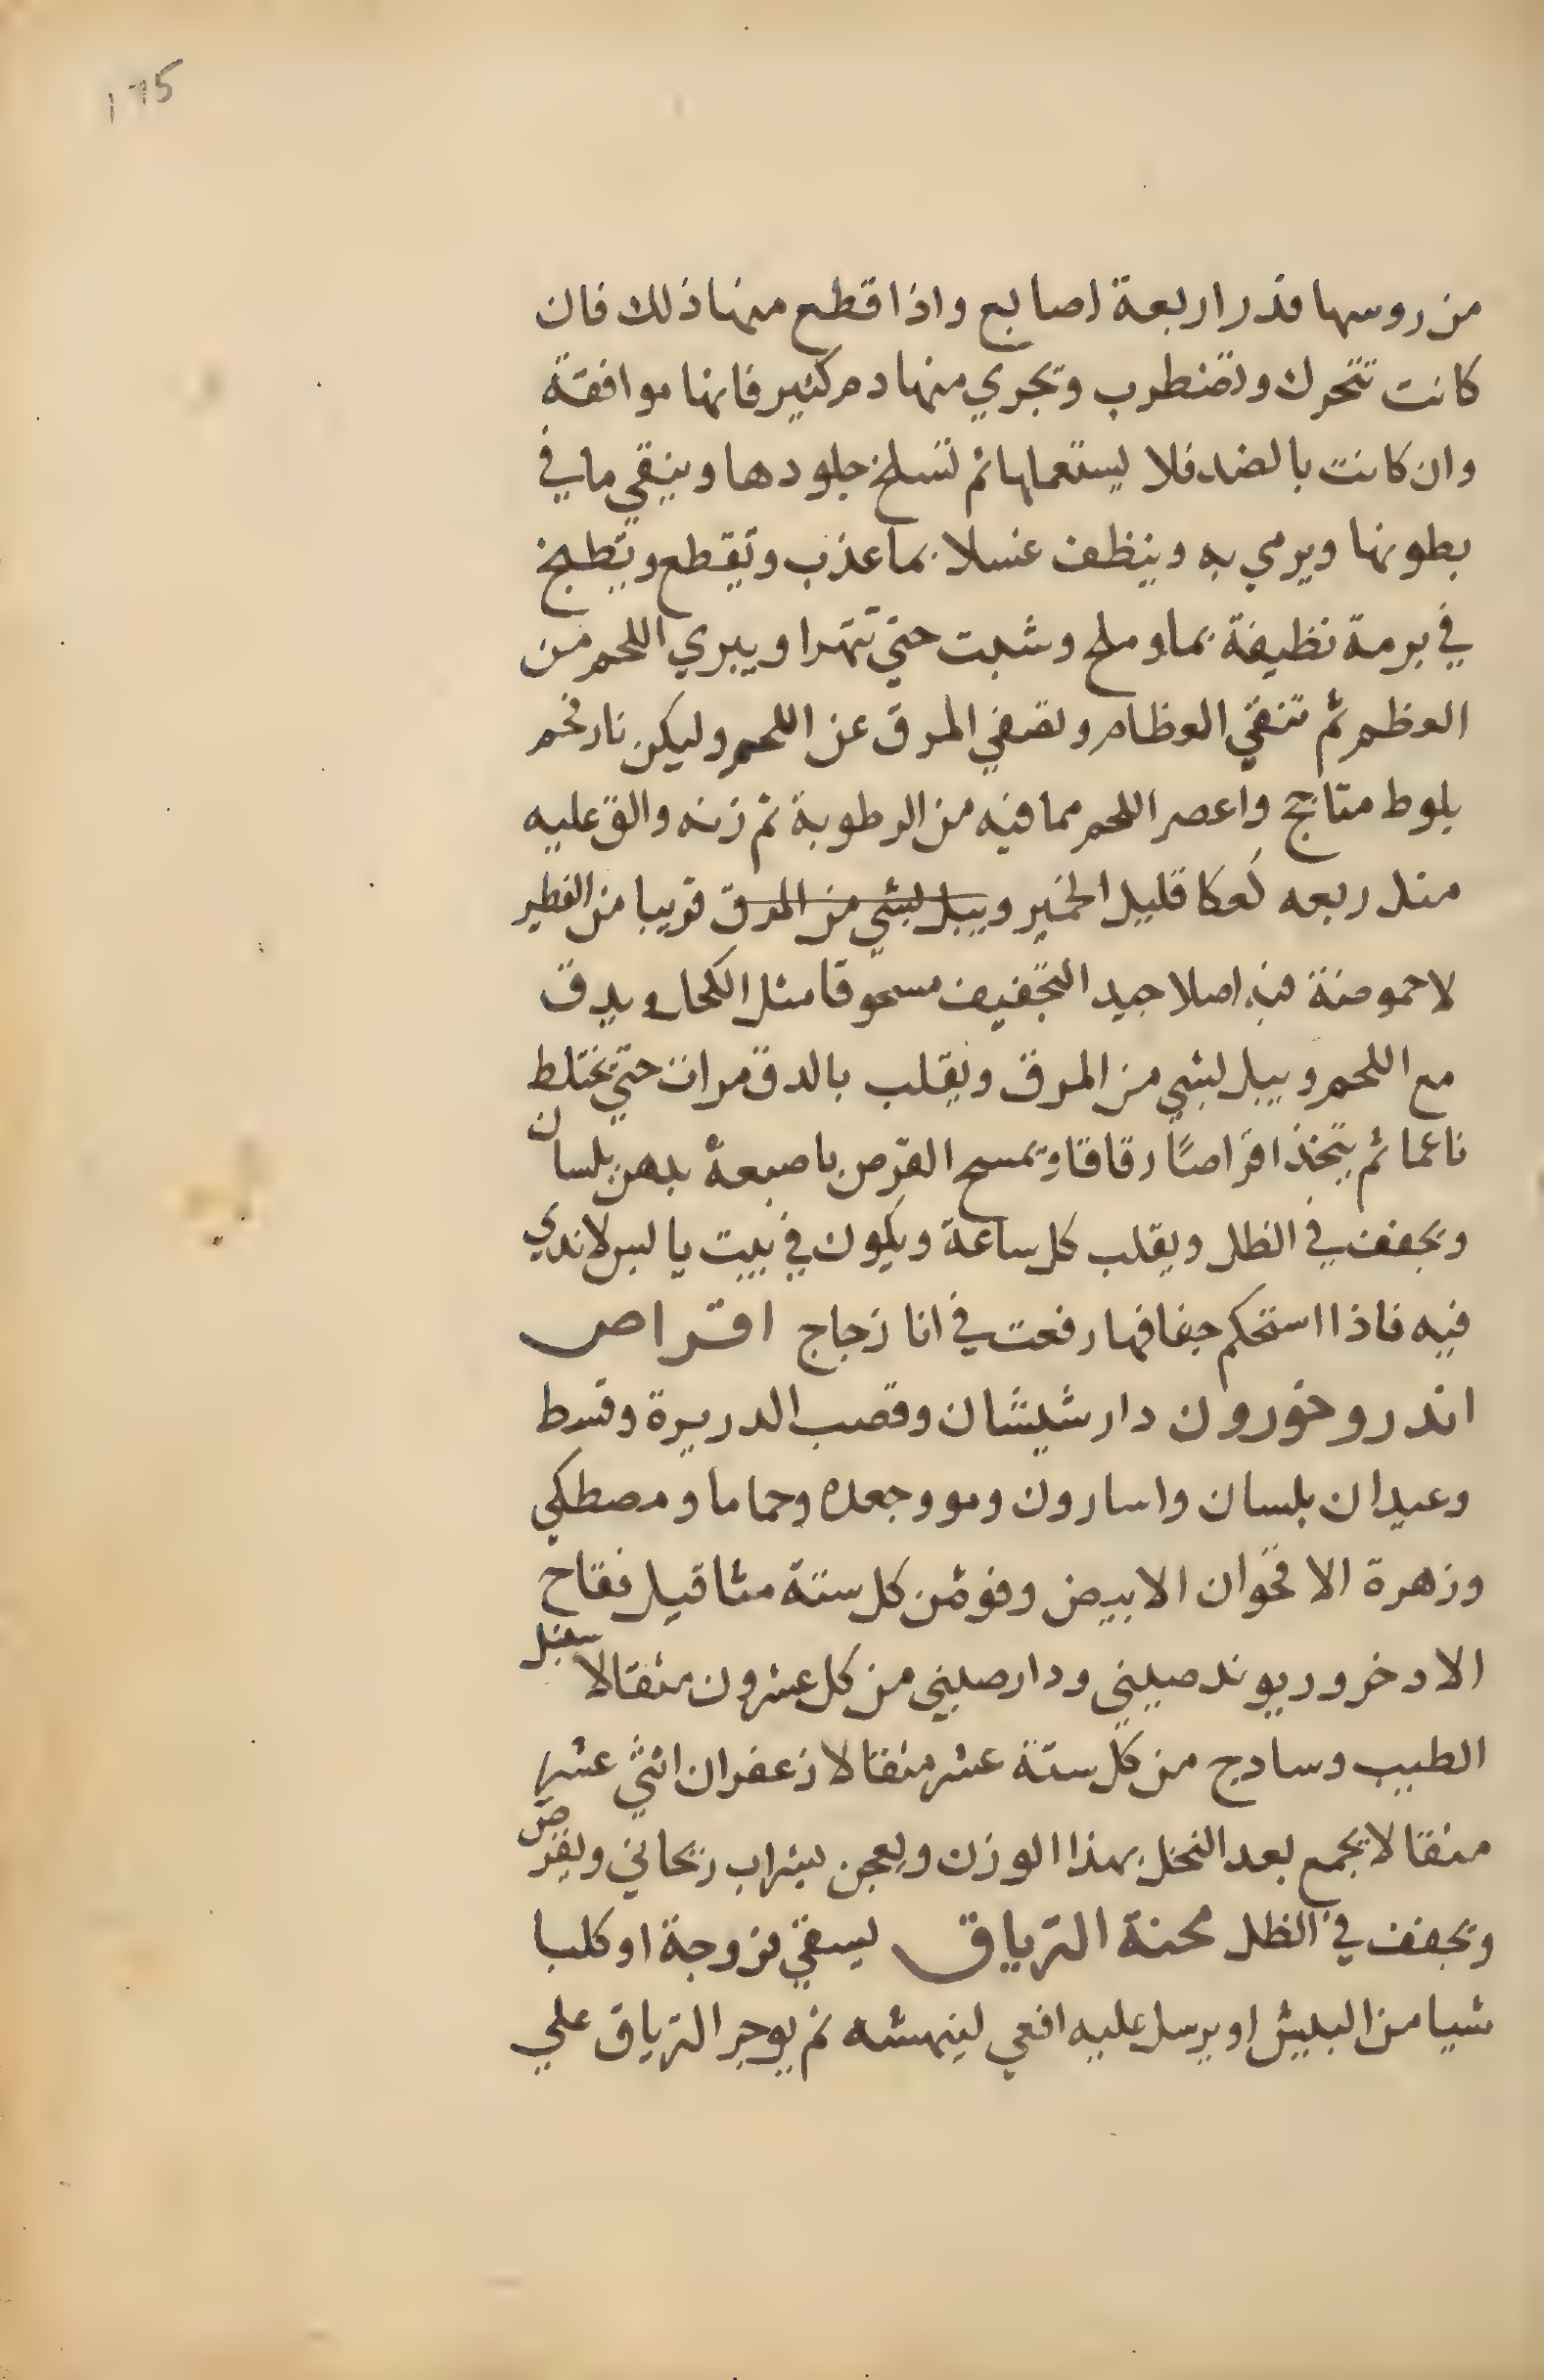 175
من روسها قدر اربعة اصابع واذا قطع منها ذلك فان
كانت تتحرك وتضطرب وتجري منها دم كثير فانها موافقة
وان كانت بالضد فلا يستعملها ثم تسلخ جلودها وينقي ما في
بطونها ويرمي به وينظف غسلا بما عذب وتقطع وتطبخ
في برمة نظيفة بما وملح وشبت حتي تتهرا ويبري اللحم من
العظم ثم تنقي العظام وتصفي المرق عن اللحم وليكن نار فحم
بلوط متاجج واعصر اللحم مما فيه من الرطوبة ثم زنه والق عليه
مثل ربعه كعكا قليل الخمير ويبل بشي من المرق قريبا من الفطير
لا حموضة فيه اصلا جيد التجفيف مسحوقا مثل الكحل ويدق
مع اللحم ويبل بشي من المرق ويقلب بالدق مرات حتي يختلط
ناعما ثم يتخذ اقراصًا رقاقا وتمسح القرص باصبعة بدهن بلسان
ويجفف في الظل ويقلب كل ساعة ويكون في بيت يابس لا ندي
فيه فاذا استحكم جفافها رفعت في انا زجاج اقراص
اندروخورون دارشيشان وقصب الدريرة وقسط
وعيدان بلسان واسارون ومو وجعده وحماما ومصطكي
وزهرة الاقحوان الابيض وفو من كل ستة مثاقيل فقاح
الادخر وريوند صيني ودارصيني من كل عشرون مثقالا سنبل
الطيب وسادج من كل ستة عشر مثقالا زعفران اثني عشر
مثقالا يجمع بعد النخل بهذا الوزن ويعجن بشراب ريحاني ويقرص
ويجفف في الظل محنة الترياق يسقي فروجة او كلبا
شيا من البيش او يرسل عليه افعي لينهشه ثم يوجر الترياق علي